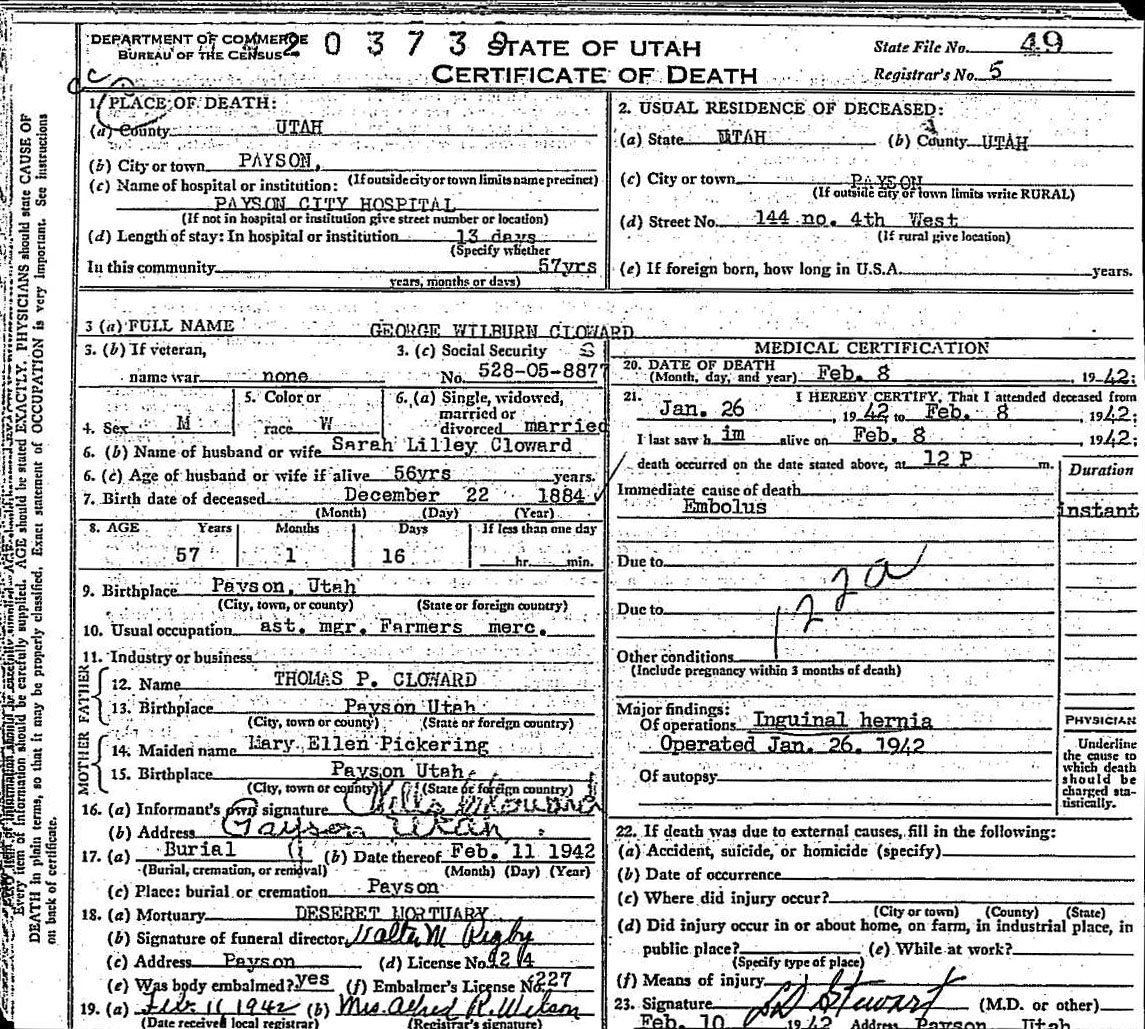 DEPARTMENT OF COMMERCE
BUREAU OF THE CENSUS
203739
STATE OF UTAH
CERTIFICATE OF DEATH
State File No. 49
Registrar's No. 5
Every item of information should be carefully supplied. AGE should be stated EXACTLY. PHYSICIANS should state CAUSE OF
DEATH in plain terms, so that it may be properly classified. Exact statement of OCCUPATION is very important. See Instructions
on back of certificate.
1. PLACE OF DEATH:
(a) County UTAH
(b) City or town PAYSON,
(If outside city or town limits name precinct)
(c) Name of hospital or institution:
PAYSON CITY HOSPITAL
(If not in hospital or institution give street number or location)
(d) Length of stay: In hospital or institution 13 days
(Specify whether
In this community 57yrs
years, months or days)
2. USUAL RESIDENCE OF DECEASED:
(a) State UTAH (b) County UTAH
(c) City or town PAYSON
(If outside city or town limits write RURAL)
(d) Street No. 144 no. 4th West
(If rural give location)
(e) If foreign born, how long in U.S.A. years.
3 (a) FULL NAME GEORGE WILBURN CLOWARD
3. (b) If veteran,
name war none
3. (c) Social Security
No. 528-05-8877
4. Sex M
5. Color or
race W
6. (a) Single, widowed,
married or
divorced married
6. (b) Name of husband or wife Sarah Lilley Cloward
6. (c) Age of husband or wife if alive 56yrs years.
7. Birth date of deceased December 22 1884
(Month) (Day) (Year)
8. AGE Years Months Days If less than one day
57 1 16 hr. min.
9. Birthplace Payson, Utah
(City, town, or county) (State or foreign country)
10. Usual occupation ast. mgr. Farmers merc.
11. Industry or business
FATHER
12. Name THOMAS P. CLOWARD
13. Birthplace Payson Utah
(City, town or county) (State or foreign country)
MOTHER
14. Maiden name Mary Ellen Pickering
15. Birthplace Payson Utah
(City, town or county) (State or foreign country)
16. (a) Informant's own signature Cloward
(b) Address Payson Utah
17. (a) Burial (b) Date thereof Feb. 11 1942
(Burial, cremation, or removal) (Month) (Day) (Year)
(c) Place: burial or cremation Payson
18. (a) Mortuary DESERET MORTUARY
(b) Signature of funeral director Walter M Rigby
(c) Address Payson (d) License No. 214
(e) Was body embalmed? yes (f) Embalmer's License No. 227
19. (a) Feb. 11 1942 (b) Mrs. Alfred R. Wilson
(Date received local registrar) (Registrar's signature)
MEDICAL CERTIFICATION
20. DATE OF DEATH
(Month, day, and year) Feb. 8, 1942:
21. I HEREBY CERTIFY, That I attended deceased from
Jan. 26, 1942 to Feb. 8 1942:
I last saw him alive on Feb. 8 1942:
death occurred on the date stated above, at 12 P m.
Duration
Immediate cause of death
Embolus instant
Due to
122a
Due to
Other conditions
(Include pregnancy within 3 months of death)
Major findings:
Of operations Inguinal hernia
Operated Jan. 26. 1942
Of autopsy
PHYSICIAN
Underline
the cause to
which death
should be
charged sta-
tistically.
22. If death was due to external causes, fill in the following:
(a) Accident, suicide, or homicide (specify)
(b) Date of occurrence
(c) Where did injury occur?
(City or town) (County) (State)
(d) Did injury occur in or about home, on farm, in industrial place, in
public place? (e) While at work?
(Specify type of place)
(f) Means of injury
23. Signature LD Stewart (M.D. or other)
Feb. 10 1942 Address Payson Utah